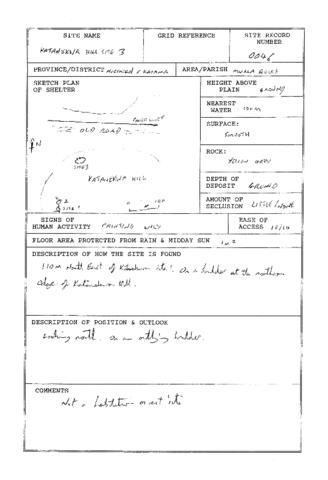 SITE NAME
GRID REFERENCE
SITE RECORD
NUMBER
HILL SITE 3
0046
PROVINCE/DISTRICT NORTHERN / KASAMA
AREA/PARISH MWELA ROCKS
SKETCH PLAN
OF SHELTER
OLD ROAD
N
SITE 3
HILL
SITE 1
HEIGHT ABOVE
PLAIN GROUND
NEAREST
WATER
SURFACE:
SMOOTH
ROCK:
GREY
DEPTH OF
DEPOSIT GROUND
AMOUNT OF
SECLUSION LITTLE/NONE
SIGNS OF
HUMAN ACTIVITY PAINTING ONLY
EASE OF
ACCESS 10/10
FLOOR AREA PROTECTED FROM RAIN & MIDDAY SUN
DESCRIPTION OF HOW THE SITE IS FOUND
110m North East of site 1. On a boulder at the northern
edge of Hill.
DESCRIPTION OF POSITION & OUTLOOK
Looking north. On an outlying boulder.
COMMENTS
Not a habitation or rest site